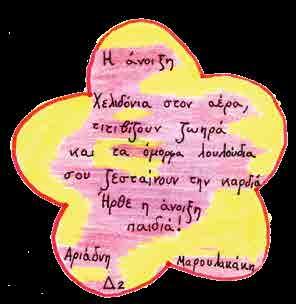 Η άνοιξη
Χελιδόνια στον αέρα,
τιτιβίζουν ζωηρά
και τα όμορφα λουλούδια
σου ζεσταίνουν την καρδιά
Ήρθε η άνοιξη
παιδιά!
Αριάδνη Μαρουλακάκη
Δ2